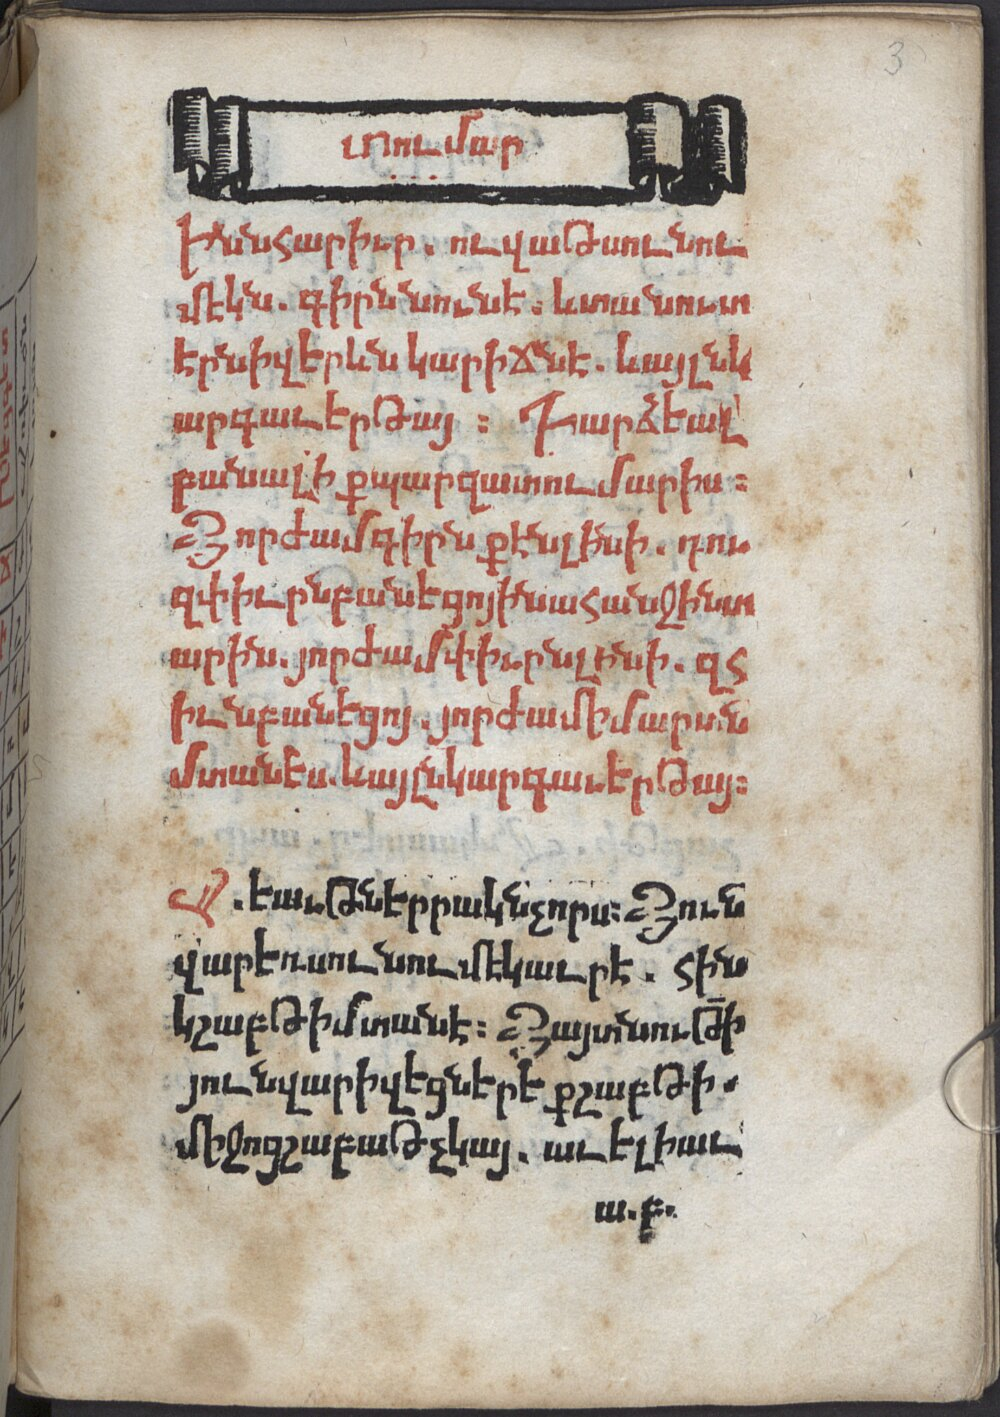 տումար
Իննհարիւր. ու վաթսունու
մէկն. գիրննունէ: և տանուտ
էրնիվերևն կարիճնէ. և այլնկ
արգաւերթայ: Դարձեալ
բանալի քպարզատումարիս:
Յորժամգիրն քէնլինի. դու
զփիւրնբանեցոյինահանջինտ
արին. յորժամփիւրնլինի. զհ
իւնբանեցոյ. յորժամիմարտն
մտանես. և այլնկարգաւերթայ:
Մ. եաւթներրակնչորս: Յուն
վարէռսունումէկաւրէ. հին
կշաբթիմտանէ: Յայտնութի
յունվարիվեցներէ քշաբթի.
միջոցշաբաթչկայ. աւելիաւ
ա. բ.